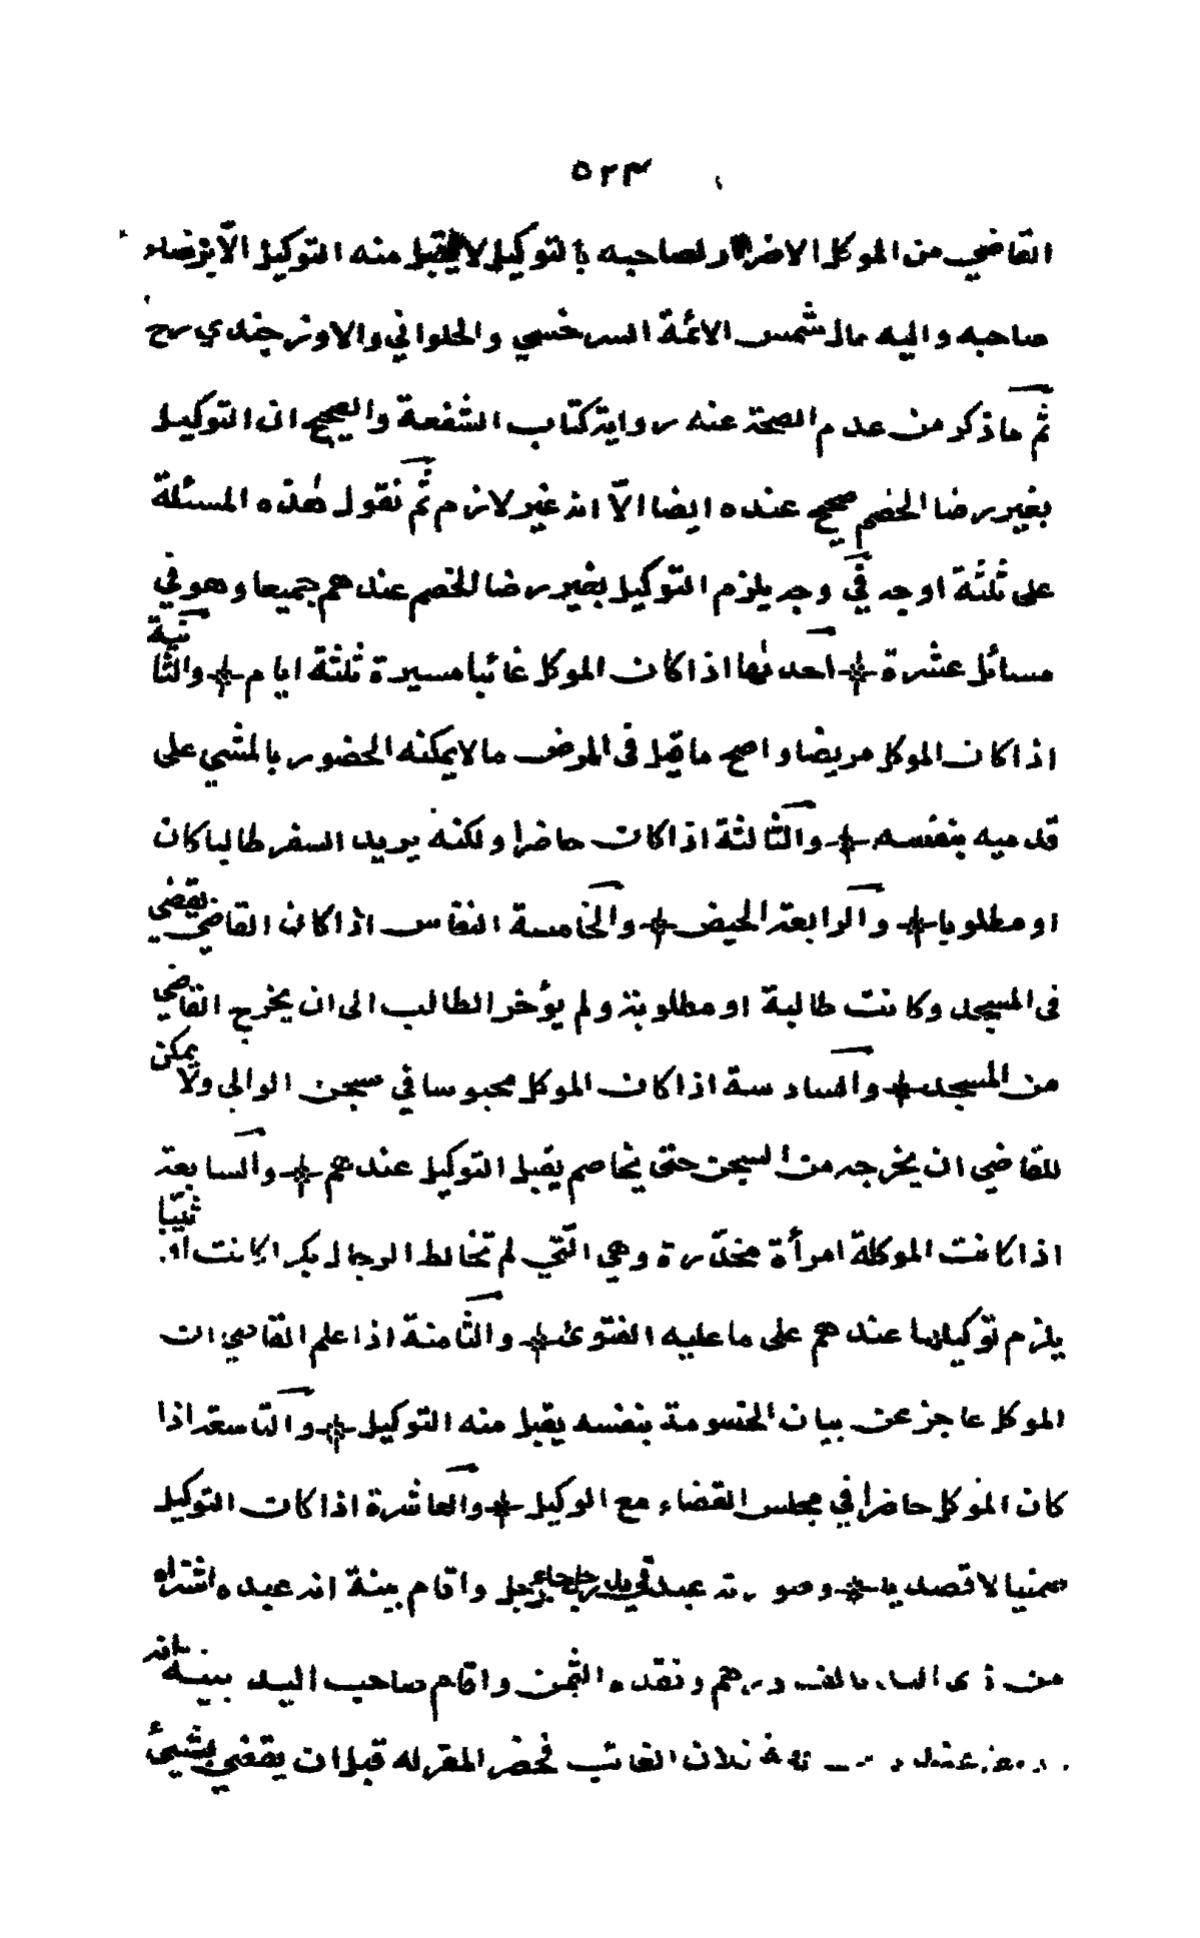 ٥٢٣
القاضي من الموكل الاضرار لصاحبه بالتوكيل لا يقبل منه التوكيل الّا برضاء
صاحبه واليه مال شمس الائمة السرخسي والحلواني والاوزجندي رح
ثم ما ذكر من عدم الصحة عنه رواية كتاب الشفعة والصحيح ان التوكيل
بغير رضا الخصم صحيح عنده ايضا الّا انه غير لازم ثم نقول هذه المسئلة
على ثلثة اوجه في وجه يلزم التوكيل بغير رضا الخصم عندهم جميعا وهو في
مسائل عشرة احدٰها اذا كان الموكل غائبا مسيرة ثلثة ايام والثّانية
اذا كان الموكل مريضا واصح ما قيل فى المرض ما لا يمكنه الحضور بالمشي على
قدميه بنفسه والثّالثة اذا كان حاضرا ولكنه يريد السفر طالبا كان
او مطلوبا والرابعة الحيض والخامسة النفاس اذا كان القاضي يقضي
فى المسجد وكانت طالبة او مطلوبة ولم يؤخر الطالب الى ان يخرج القاضي
من المسجد والسادسة اذا كان الموكل محبوسا في سجن الوالي ولا يمكن
للقاضي ان يخرجه من السجن حتى يخاصم يقبل التوكيل عندهم والسابعة
اذا كانت الموكلة امرأة مخدّرة وهي الّتي لم تخالط الرجال بكرا كانت او ثيّبا
يلزم توكيلها عندهم على ما عليه الفتوى والثّامنة اذا علم القاضي ان
الموكل عاجز عن بيان الخصومة بنفسه يقبل منه التوكيل والتّاسعة اذا
كان الموكل حاضرا في مجلس القضاء مع الوكيل والعاشرة اذا كان التوكيل
ضمنيا لا قصديا وصورته عبد في يد رجل جاء رجل واقام بينة انه عبده اشتراه
من ذى اليد بالف درهم ونقده الثمن واقام صاحب اليد بينة انه
فلان الغائب فحضر المقر له قبل ان يقضي بشيئ